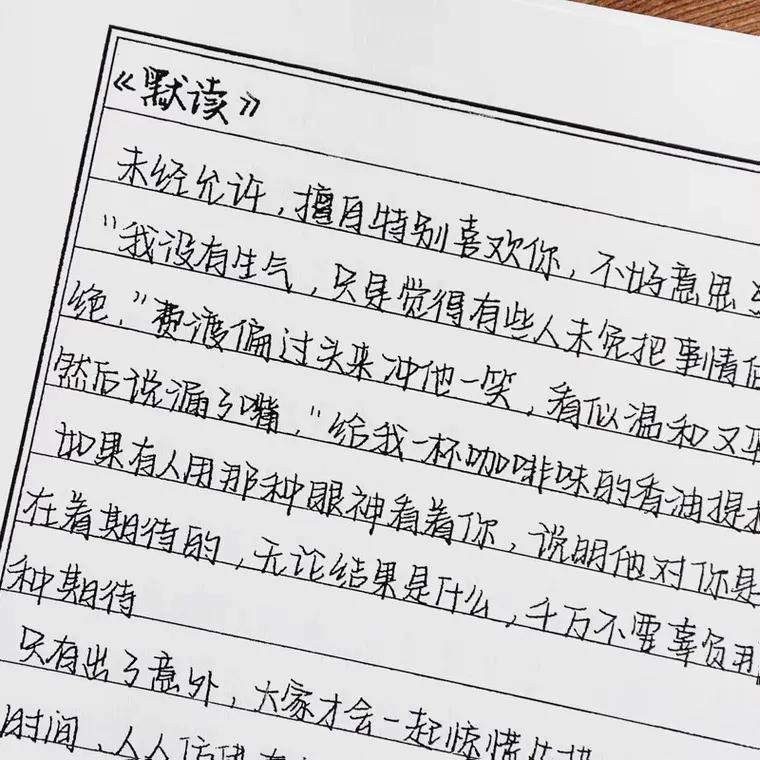 《默读》
未经允许，擅自特别喜欢你，不好意思
"我没有生气，只是觉得有些人未免把事情
绝，"费渡偏过头来冲他一笑，看似温和又平
然后说漏了嘴，"给我一杯咖啡味的香油提
如果有人用那种眼神看着你，说明他对你是
在着期待的，无论结果是什么，千万不要辜负那
种期待
只有出了意外，大家才会一起惊慌
时间，人人